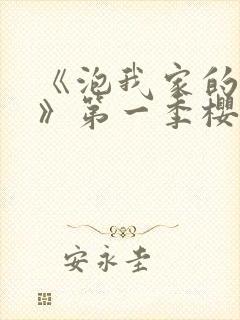 《泡我家的
》第一季樱
安永圭